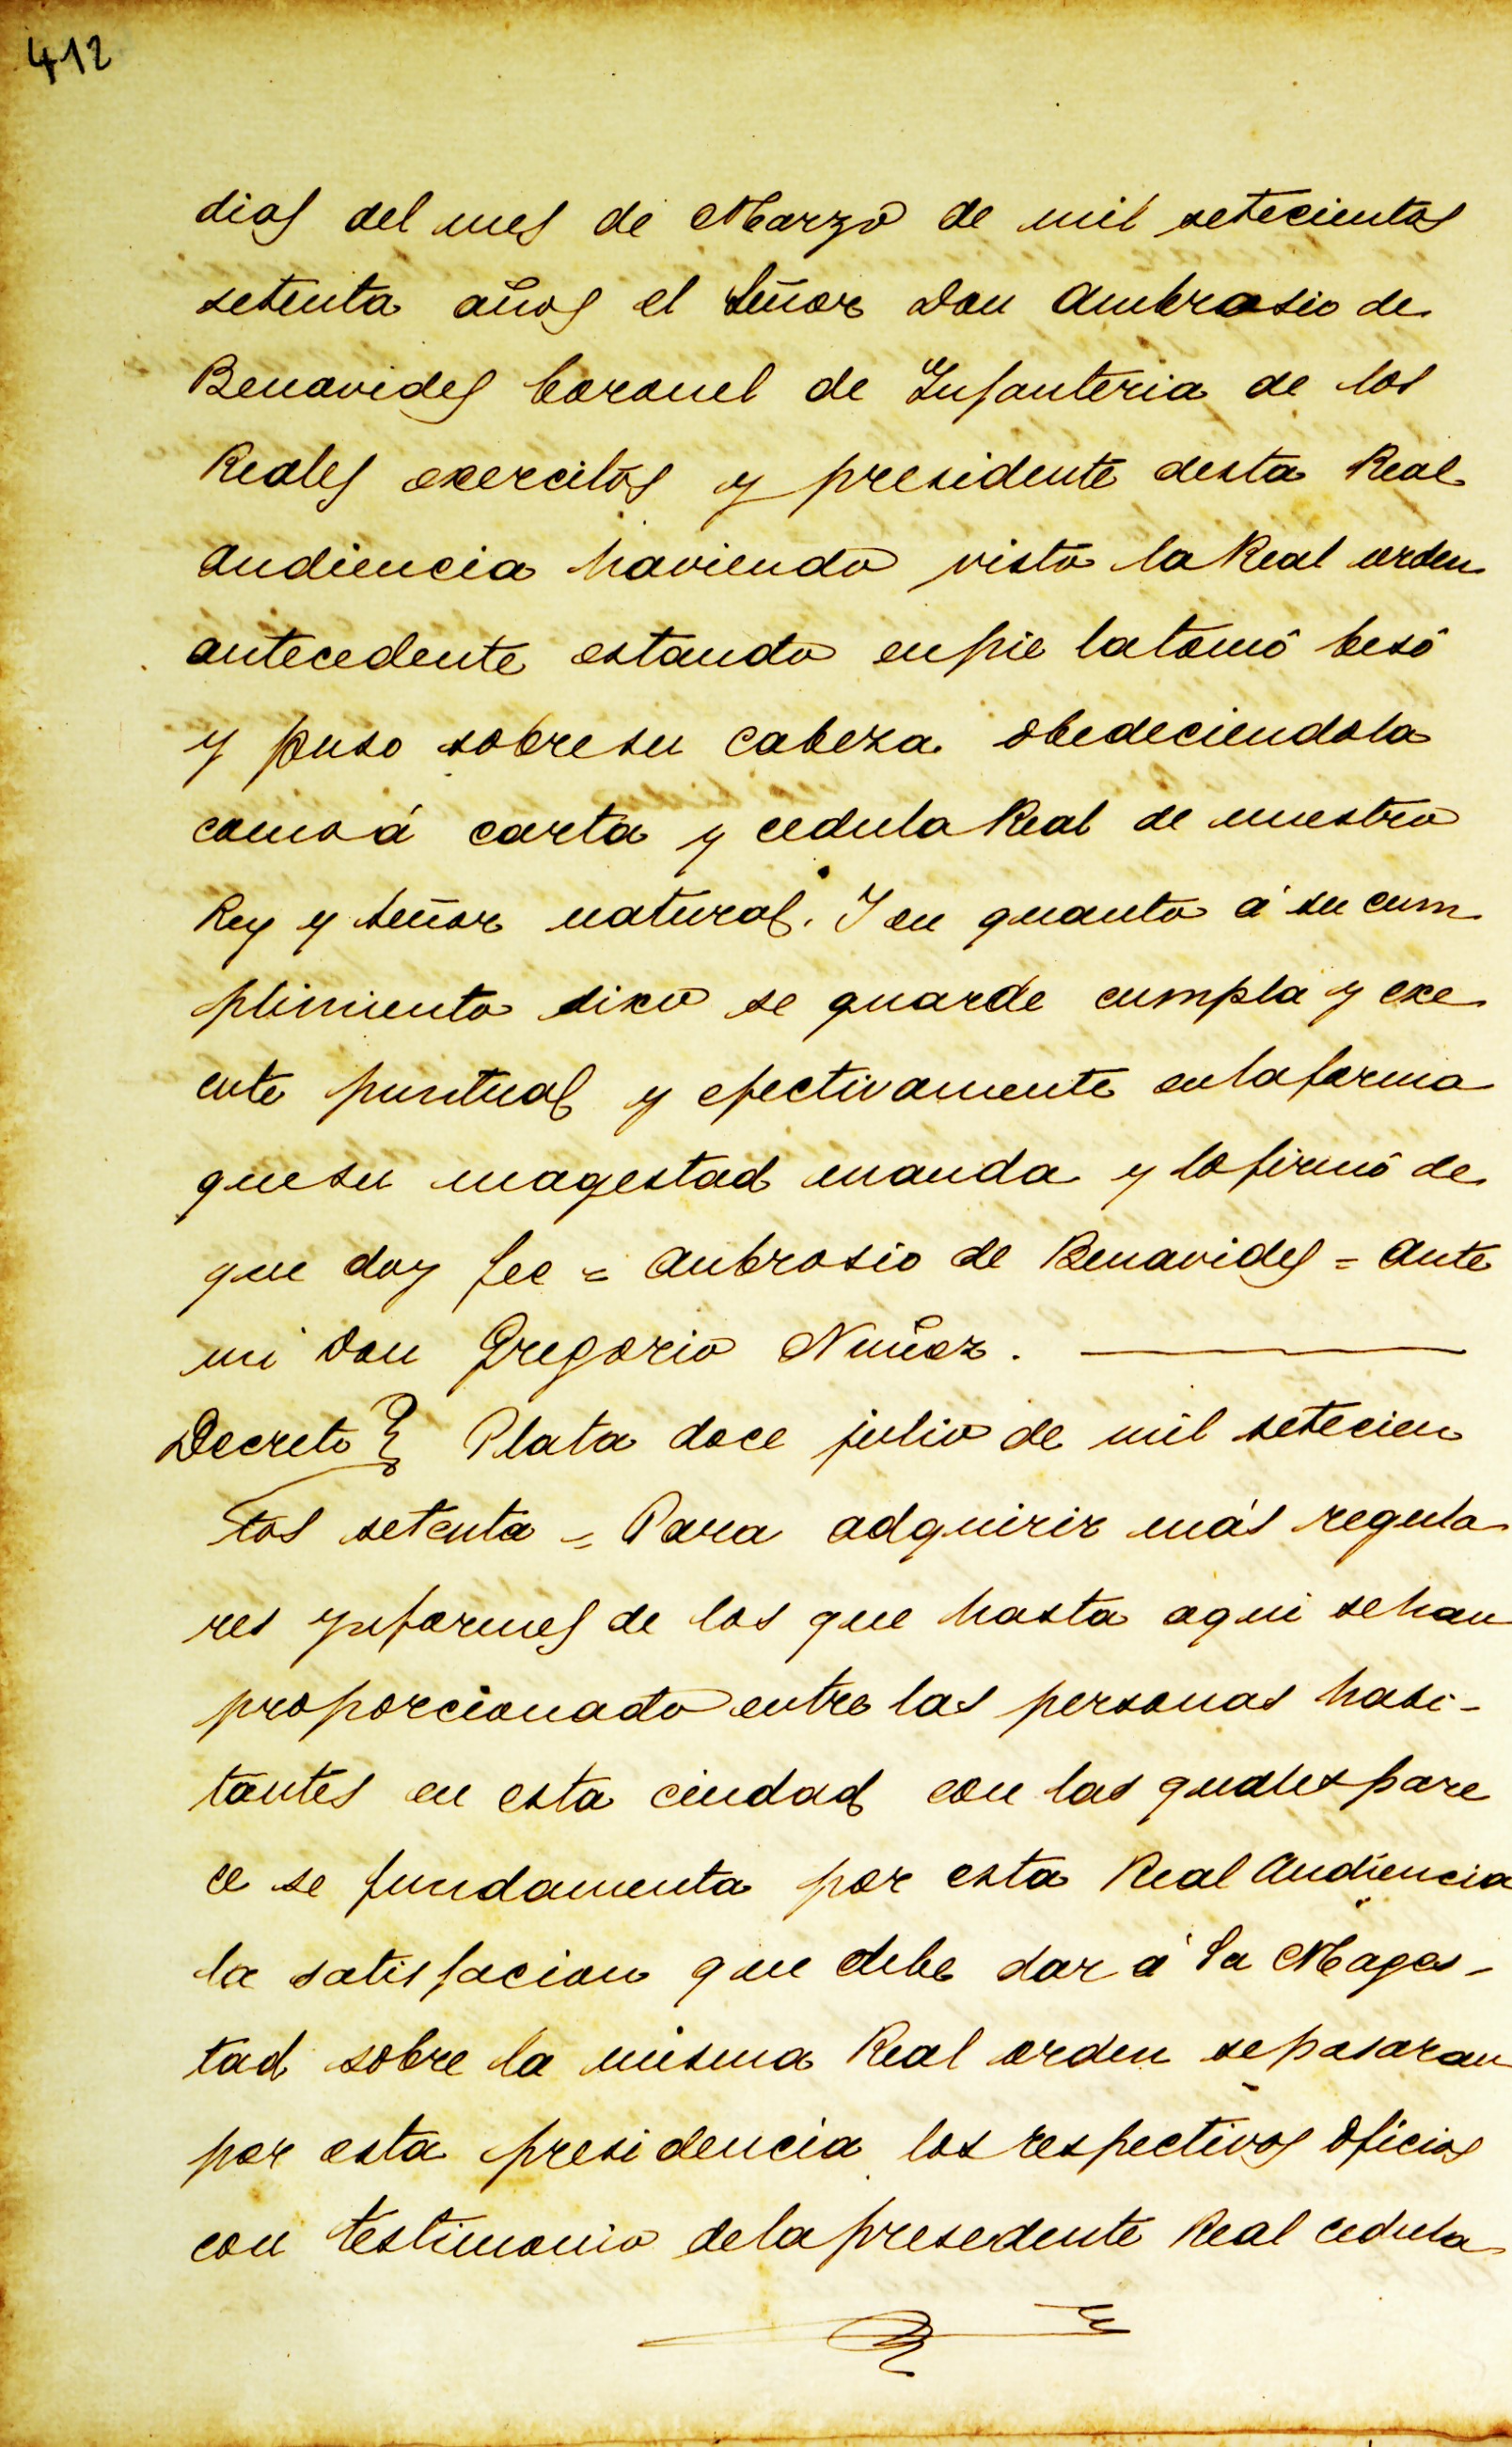 412
dias del mes de Marzo de mil setecientos
setenta años el Señor Don Ambrosio de
Benavides Coronel de Infanteria de los
Reales exercitos y presidente desta Real
Audiencia haviendo visto la Real orden
antecedente estando enpie latomó besó
y puso sobresu cabeza obedeciendola
comoá carta y cedula Real de nuestro
Rey y Señor natural. I en quanto á su cum
plimiento dixo se guarde cumpla y exe
cute puntual y efectivamente enlaforma
quesu magestad manda y lofirmó de
que doy fee = Anbrosio de Benavides = Ante
mi Don Gregorio Nuñez.
Decreto Plata doce julio de mil setecien
tos setenta = Para adquirir más regula
res ynformes de los que hasta aqui sehan
proporcionado entre las personas habi-
tantes en esta ciudad con las quales pare
ce se fundamenta por esta Real Audiencia
la satisfacion que debe dar á Su Mages-
tad sobre la misma Real orden sepasaran
por esta presidencia los respectivos Oficios
con testimonio delapresedente Real cedula